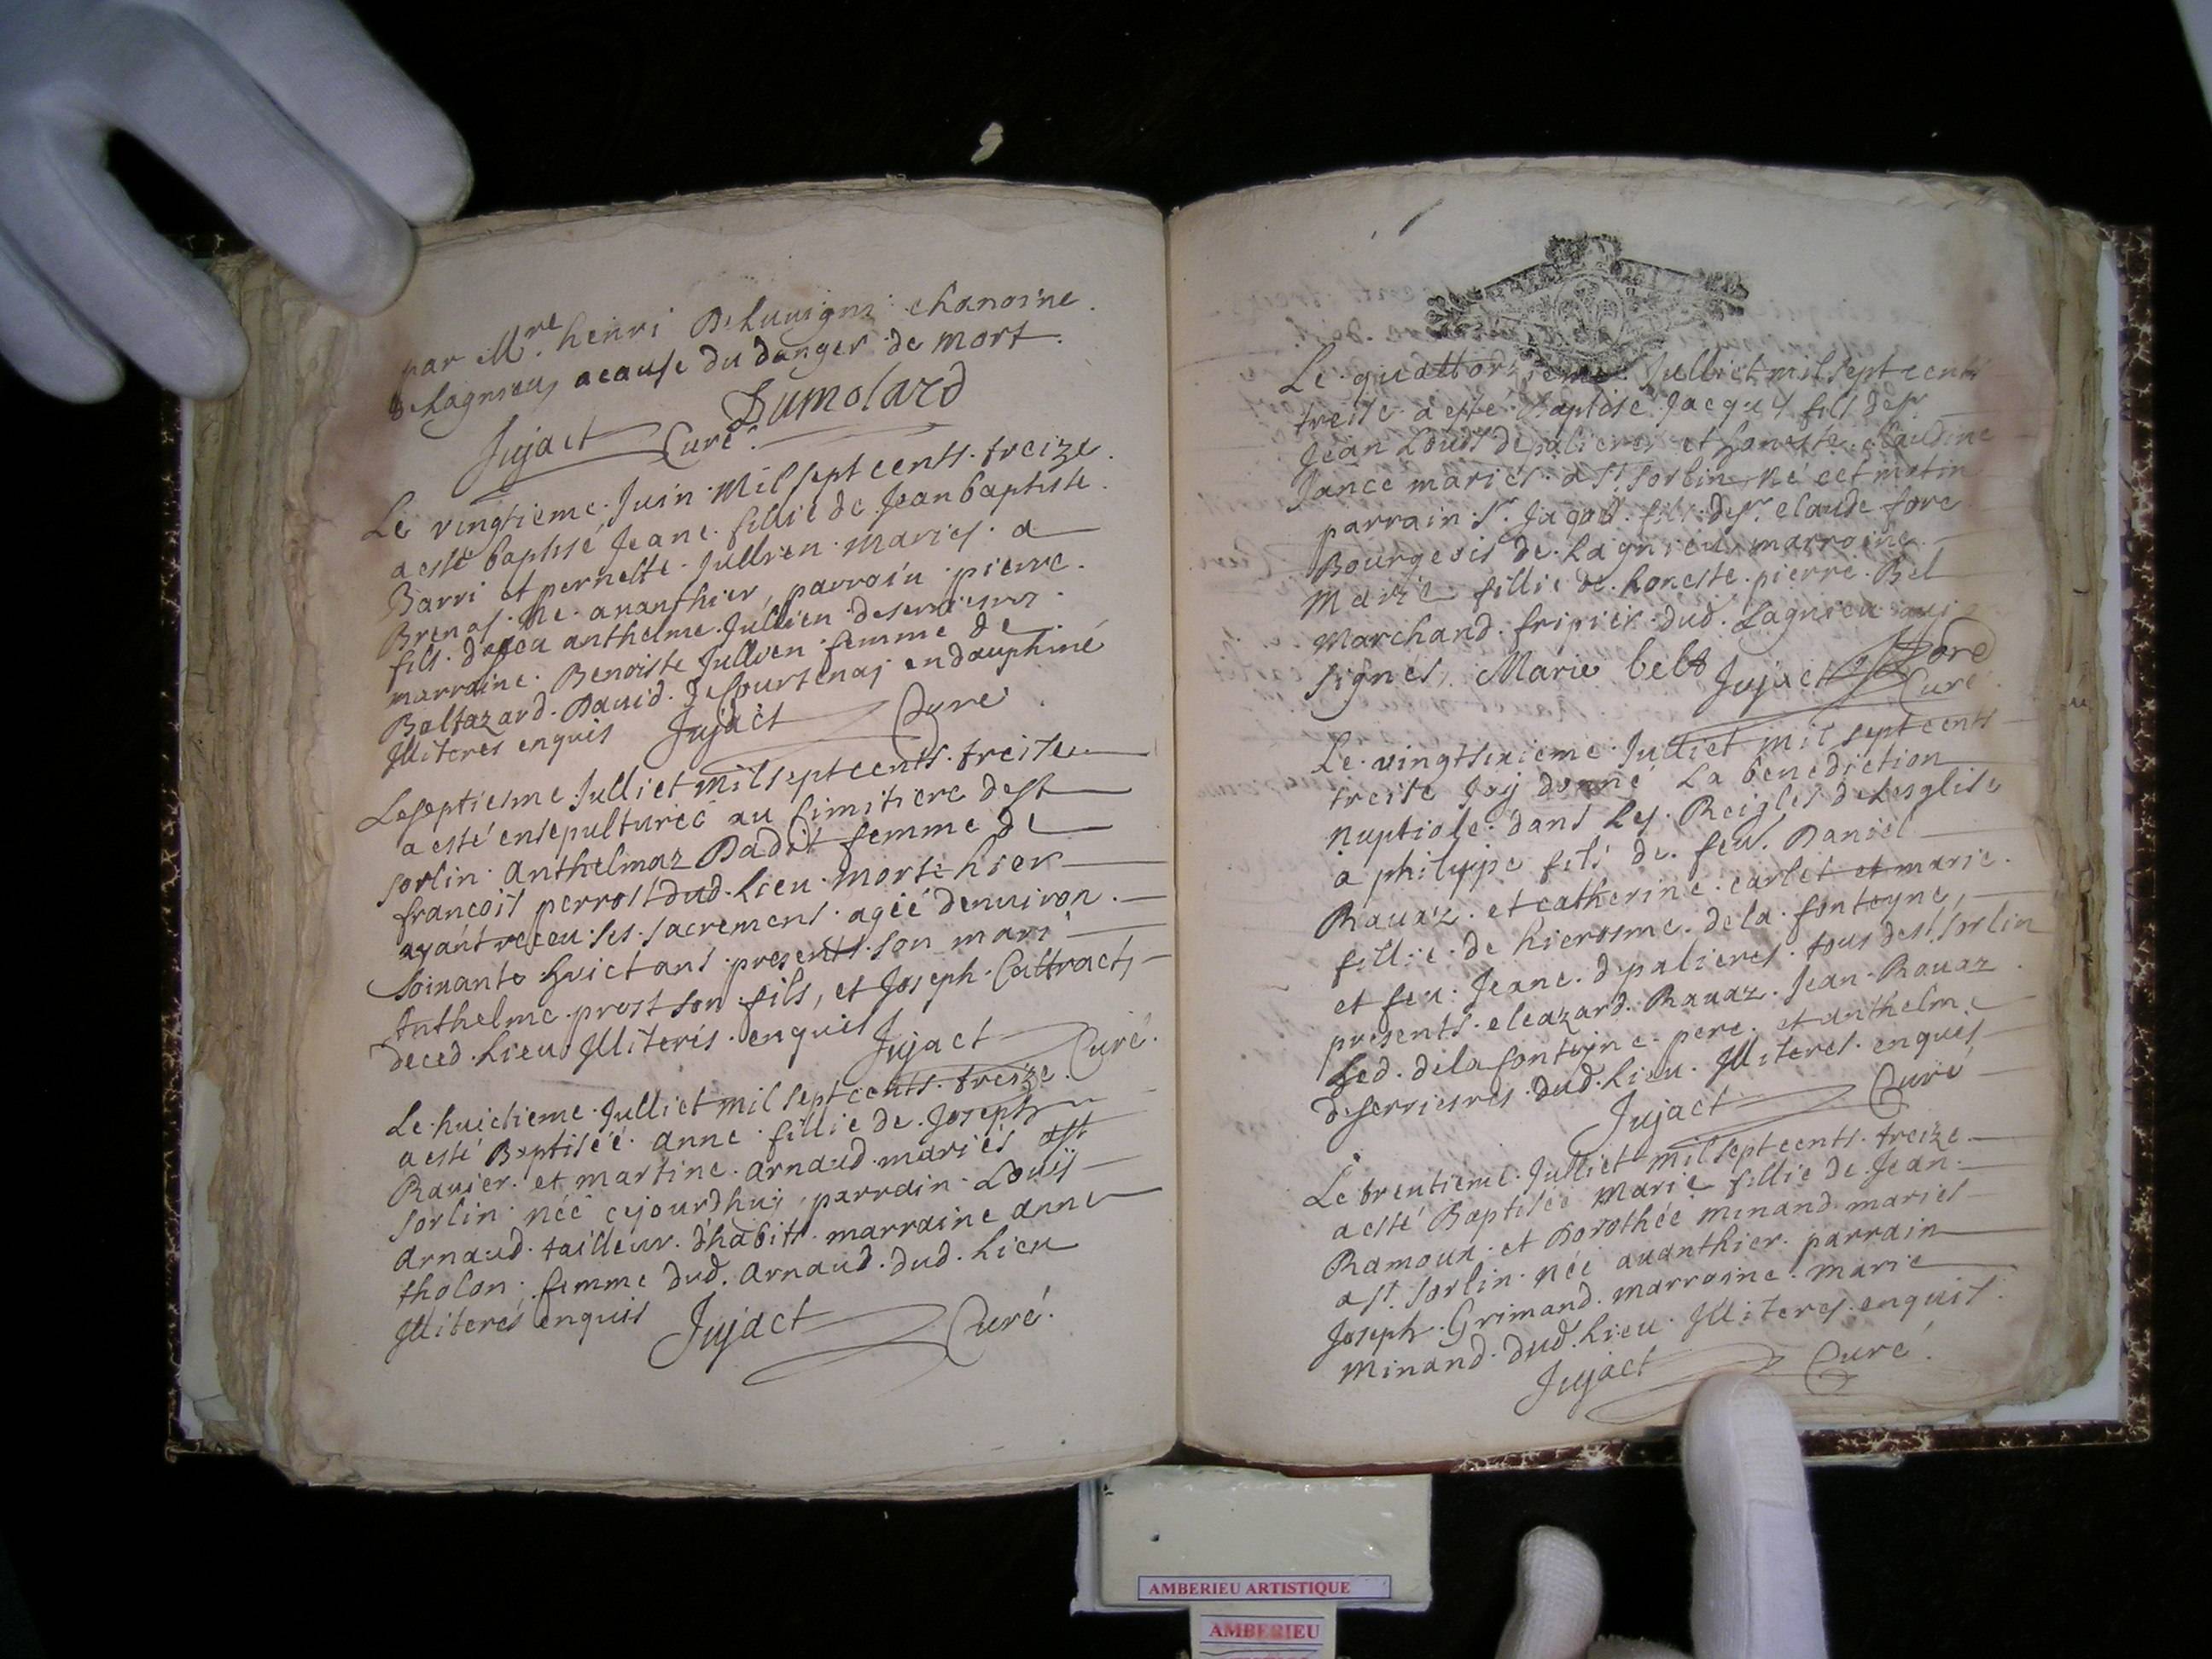 par Mre. henri Deluuigni chanoine.
de Lagnieu, a cause du danger de mort.
Dumolard
Jujact Curé.
Le vingtieme Juin mil sept cents treize.
a esté baptisé Jeane fillie de Jean baptiste
Barri et pernette Jullien mariés a
Brenas. Né auanthier, parrain pierre.
fils de feu anthelme Jullien deserrieres.
marraine Benoiste Jullien femme de
Baltazard David de Courtenaj en dauphiné
Illiteres enquis Jujact Curé
Leseptiesme Julliet mil sept cents treise
a esté ensepulturéé au simitiere de st
sorlin anthelmaz Dadit femme de
francois perrost dud. Lieu morte hier
ayant receu ses sacrements agéé denuiron.
soixante huict ans presents son mari
Anthelme prost son fils, et Joseph Cattract
de ced. Lieu Illiterés enquis Jujact Curé.
Le huictieme Julliet mil sept cents treize.
a esté Baptiséé anne fillie de Joseph
Rauier et martine arnaud mariés a st
sorlin néé cejourdhuy parrain Louis
arnaud tailleur d'habits marraine anne
tholon, femme dud. arnaud dud. Lieu
Illiterés enquis Jujact Curé.
Le quattorzieme Julliet mil sept cents
treise a esté Baptisé Jacques fils de sr.
Jean Louis depalieres et honeste claudine
Jance mariés a st sorlin, né cet matin
parrain sr. Jaques fils de sr. claude fore
Bourgeois de Lagnieu, marraine
Marie fillie de honeste pierre Bel
Marchand fripier dud. Lagnieu
signés, Marie belt Jujact fore
Curé
Le vingtsixieme Julliet mil sept cents
treise Jay donné La benediction
nuptiale dans Les Reigles de Lesglise
a philippe fils de feu Daniel
Rauaz et catherine carlet et marie.
fillie de hierosme de la fonteyne,
et feu Jeane depalieres tous de st. sorlin
presents eleazard Rauaz Jean Rauaz
Led. de la fonteyne pere et anthelme
deserrieres dud. Lieu Illiteres enquis
Jujact Curé
Le trentieme Julliet mil sept cents treize
a esté Baptiséé Marie fillie de Jean
Ramoux et Dorothée minand mariés
a st. sorlin néé auanthier parrain
Joseph Grimand marraine marie
Minand dud. Lieu Illiteres enquis.
Jujact Curé.
AMBERIEU ARTISTIQUE
AMBERIEU